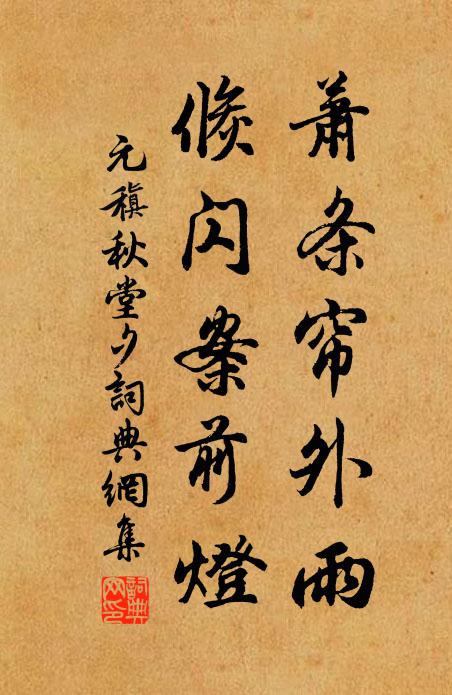 萧条帘外雨
倏闪案前燈
元稹秋堂夕詞典網集
詞典网印